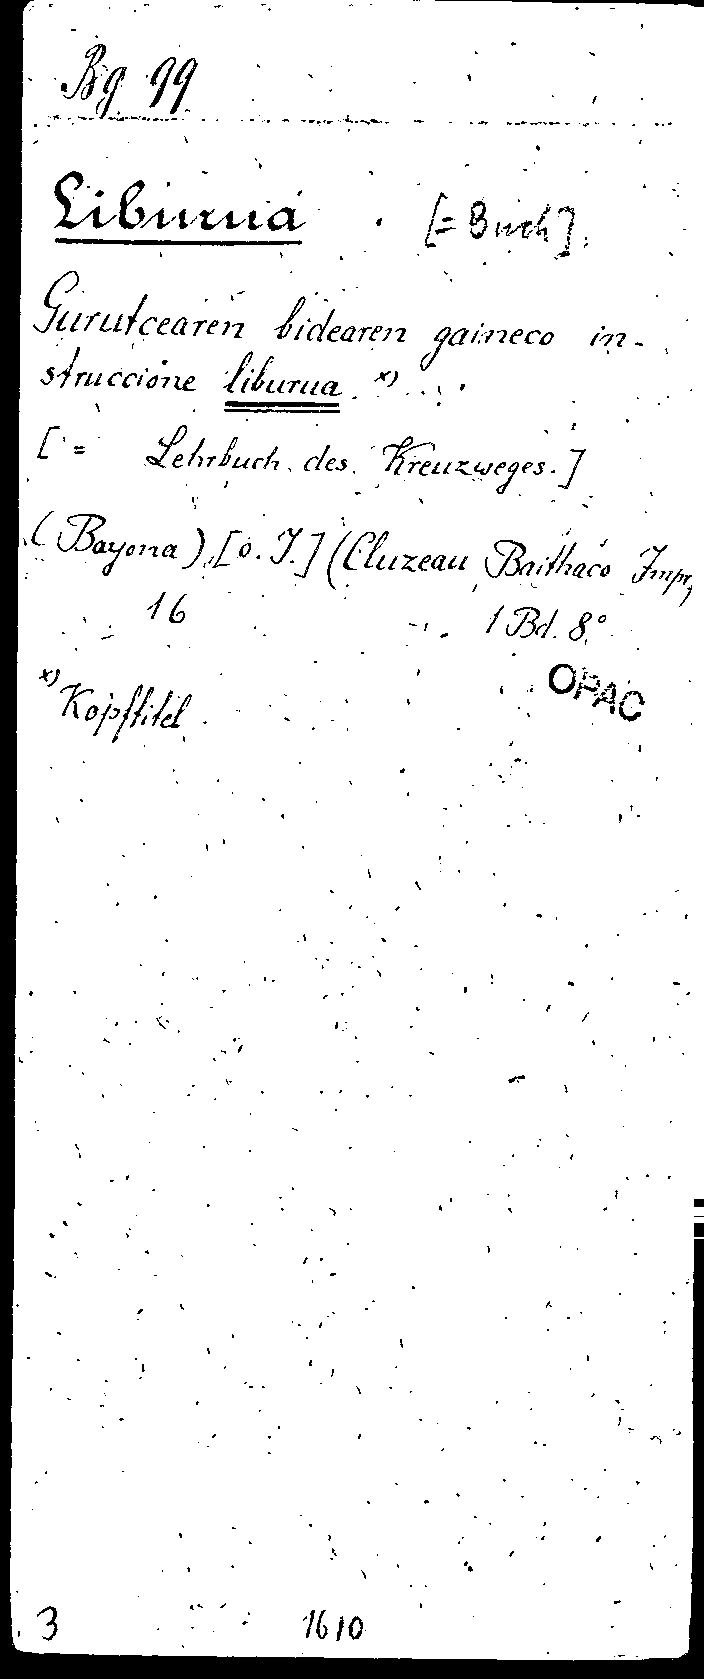 Bg 99
Liburua [= Buch]
Gurutcearen bidearen gaineco in-
struccione liburua x)
[ = Lehrbuch des Kreuzweges.]
(Bayona) [o. J.] (Cluzeau Baithaco Impr,
16 1 Bd. 8°
x) Kopftitel
OPAC
3 1610